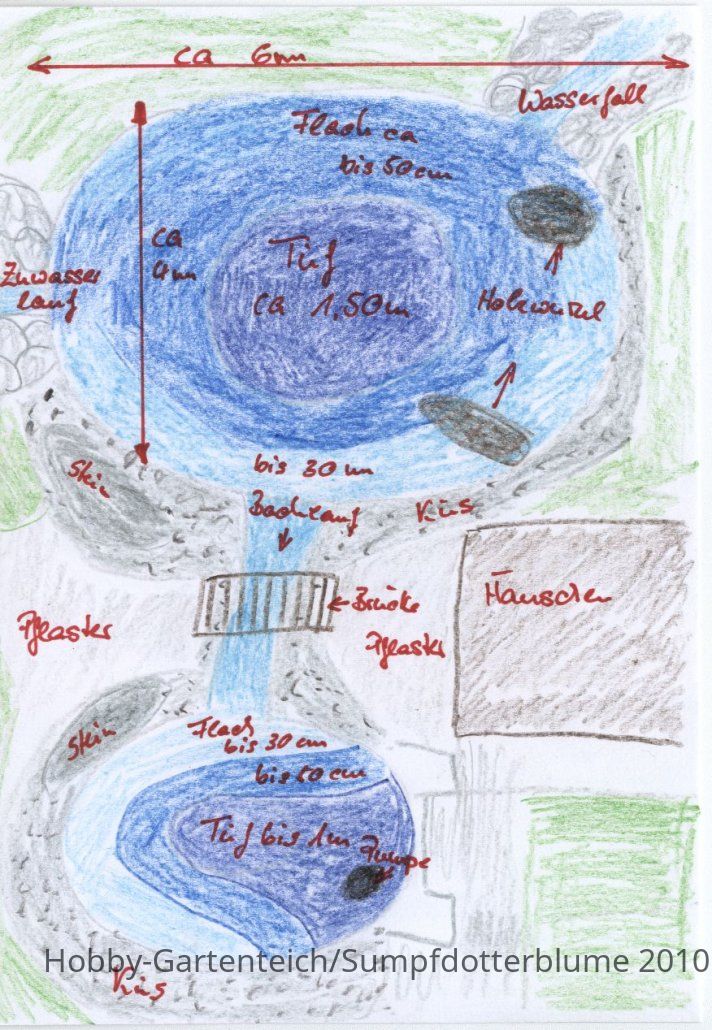 ca 6m
Wasserfall
Flach ca
bis 50cm
ca
4m
Tief
ca 1,50m
Zuwasser
lauf
Holzwurzel
bis 30 cm
Stein
Bachlauf
Kies
Häuschen
Brücke
Pflaster
Pflaster
Stein
Flach
bis 30 cm
bis 50 cm
Tief bis 1m
Pumpe
Hobby-Gartenteich/Sumpfdotterblume 2010
Kies